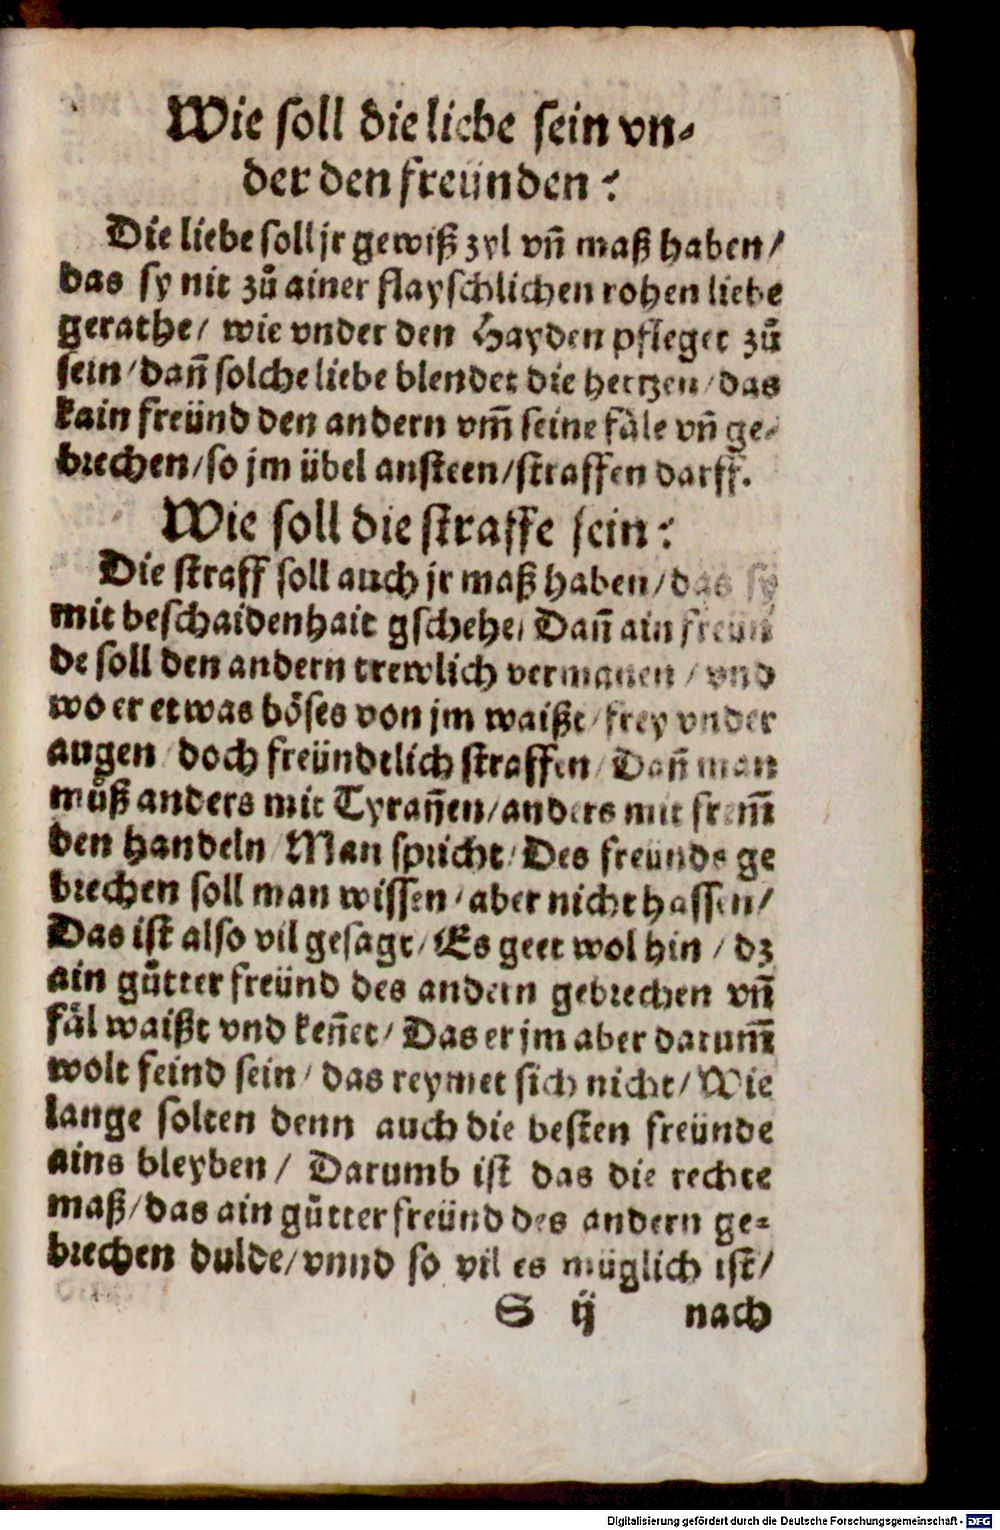 Wie soll die liebe sein vn-
der den freünden?
Die liebe soll jr gewiß zyl vñ maß haben/
das sy nit zů ainer flayschlichen rohen liebe
gerathe/ wie vnder den Hayden pfleget zů
sein/ dañ solche liebe blendet die hertzen/ das
kain freünd den andern vm̃ seine fäle vñ ge-
brechen/ so jm übel ansteen/ straffen darff.
Wie soll die straffe sein?
Die straff soll auch jr maß haben/ das sy
mit beschaidenhait gschehe/ Dañ ain freün
de soll den andern trewlich vermanen/ vnd
wo er etwas böses von jm waißt/ frey vnder
augen/ doch freündtlich straffen/ Dañ man
můß anders mit Tyrañen/ anders mit frem̃
den handeln/ Man spricht/ Des freunds ge
brechen soll man wissen/ aber nicht hassen/
Das ist also vil gesagt/ Es geet wol hin/ dz
ain gůtter freünd des andern gebrechen vñ
fäl waißt vnd keñet/ Das er jm aber darum̃
wolt feind sein/ das reymet sich nicht/ Wie
lange solten denn auch die besten freünde
ains bleyben/ Darumb ist das die rechte
maß/ das ain gůtter freünd des andern ge-
brechen dulde/ vnnd so vil es müglich ist/
S ij nach
Digitalisierung gefördert durch die Deutsche Forschungsgemeinschaft - DFG